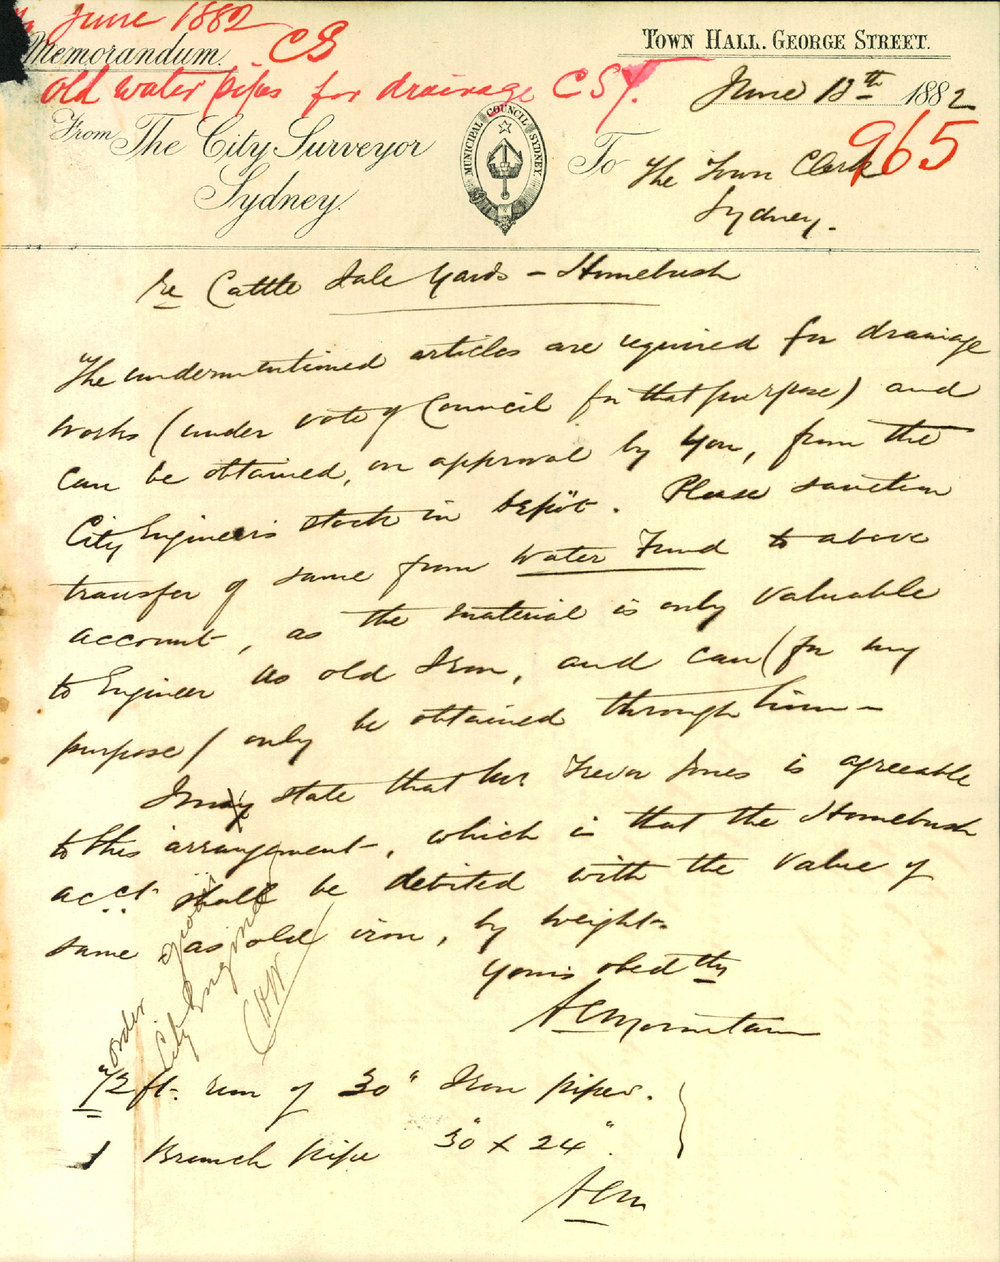 June 1882
Memorandum. CS
TOWN HALL. GEORGE STREET.
old water pipes for drainage CSY.
June 13th 1882
965
From The City Surveyor
Sydney.
MUNICIPAL COUNCIL SYDNEY
To The Town Clerk
Sydney.
Re Cattle Sale Yards - Homebush
The undermentioned articles are required for drainage
works (under vote of Council for that purpose) and
can be obtained, on approval by you, from the
City Engineer's stock in Depôt. Please sanction
transfer of same from Water Fund to above
account, as the material is only valuable
to Engineer as old Iron, and can (for my
purpose) only be obtained through him -
I may state that Mr. Trevor Jones is agreeable
to this arrangement, which is that the Homebush
acct. shall be debited with the value of
same as old iron, by weight.
Yours obedtly
ACMountain
order
City Engineer
72 ft. run of 30" Iron pipes.
1 Branch pipe 30" x 24".
ACM